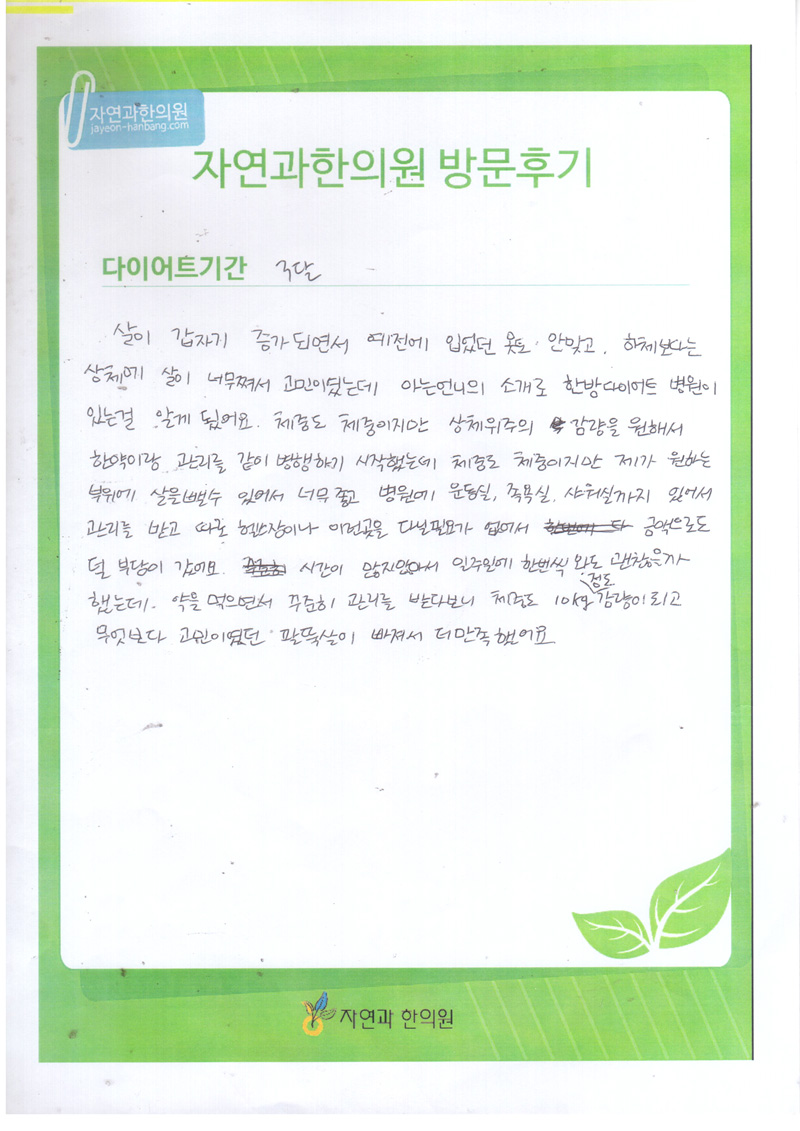 자연과한의원
jayeon-hanbang.com
자연과한의원 방문후기
다이어트기간 3달
살이 갑자기 증가되면서 예전에 입었던 옷도 안맞고, 하체보다는
상체에 살이 너무쪄서 고민이였는데 아는언니의 소개로 한방다이어트 병원이
있는걸 알게 됬어요. 체중도 체중이지만 상체위주의 감량을 원해서
한약이랑 관리를 같이 병행하기 시작했는데 체중도 체중이지만 제가 원하는
부위에 살을뺄수 있어서 너무좋고 병원에 운동실, 족욕실, 샤워실까지 있어서
관리를 받고 따로 헬스장이나 이런곳을 다닐필요가 없어서 금액으로도
덜 부담이 갔어요. 시간이 많지않아서 일주일에 한번씩 와도 괜찮을까
했는데. 약을 먹으면서 꾸준히 관리를 받다보니 체중도 10kg 정도 감량이 되고
무엇보다 고민이였던 팔뚝살이 빠져서 더만족했어요
자연과 한의원